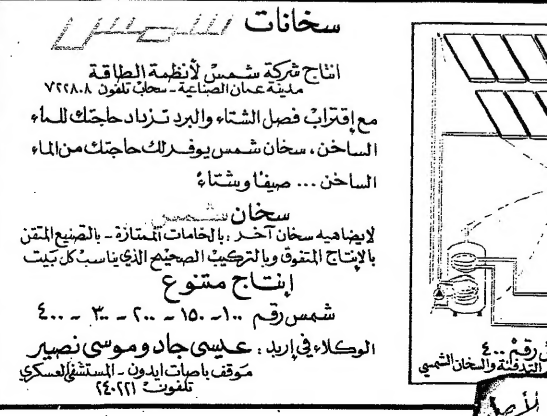 سخانات شمس
انتاج شركة شمس لأنظمة الطاقة
مدينة عمان الصناعية - سحاب تلفون ٧٢٢٨٠٨
مع إقتراب فصل الشتاء والبرد تزداد حاجتك للماء
الساخن، سخان شمس يوفر لك حاجتك من الماء
الساخن ... صيفا وشتاء
سخان شمس
لايضاهيه سخان آخر، بالخامات الممتازة - بالصنيع المتقن
بالإنتاج المتفوق وبالتركيب الصحيح الذي يناسب كل بيت
إنتاج متنوع
شمس رقم ١٠٠ - ١٥٠ - ٢٠٠ - ٣٠٠ - ٤٠٠
الوكلاء في إربد: عيسى جاد وموسى نصير
موقف باصات ايدون - المستشفى العسكري
تلفون ٢٤٠٢٢١
رقم ٤٠٠
التدفئة والسخان الشمسي